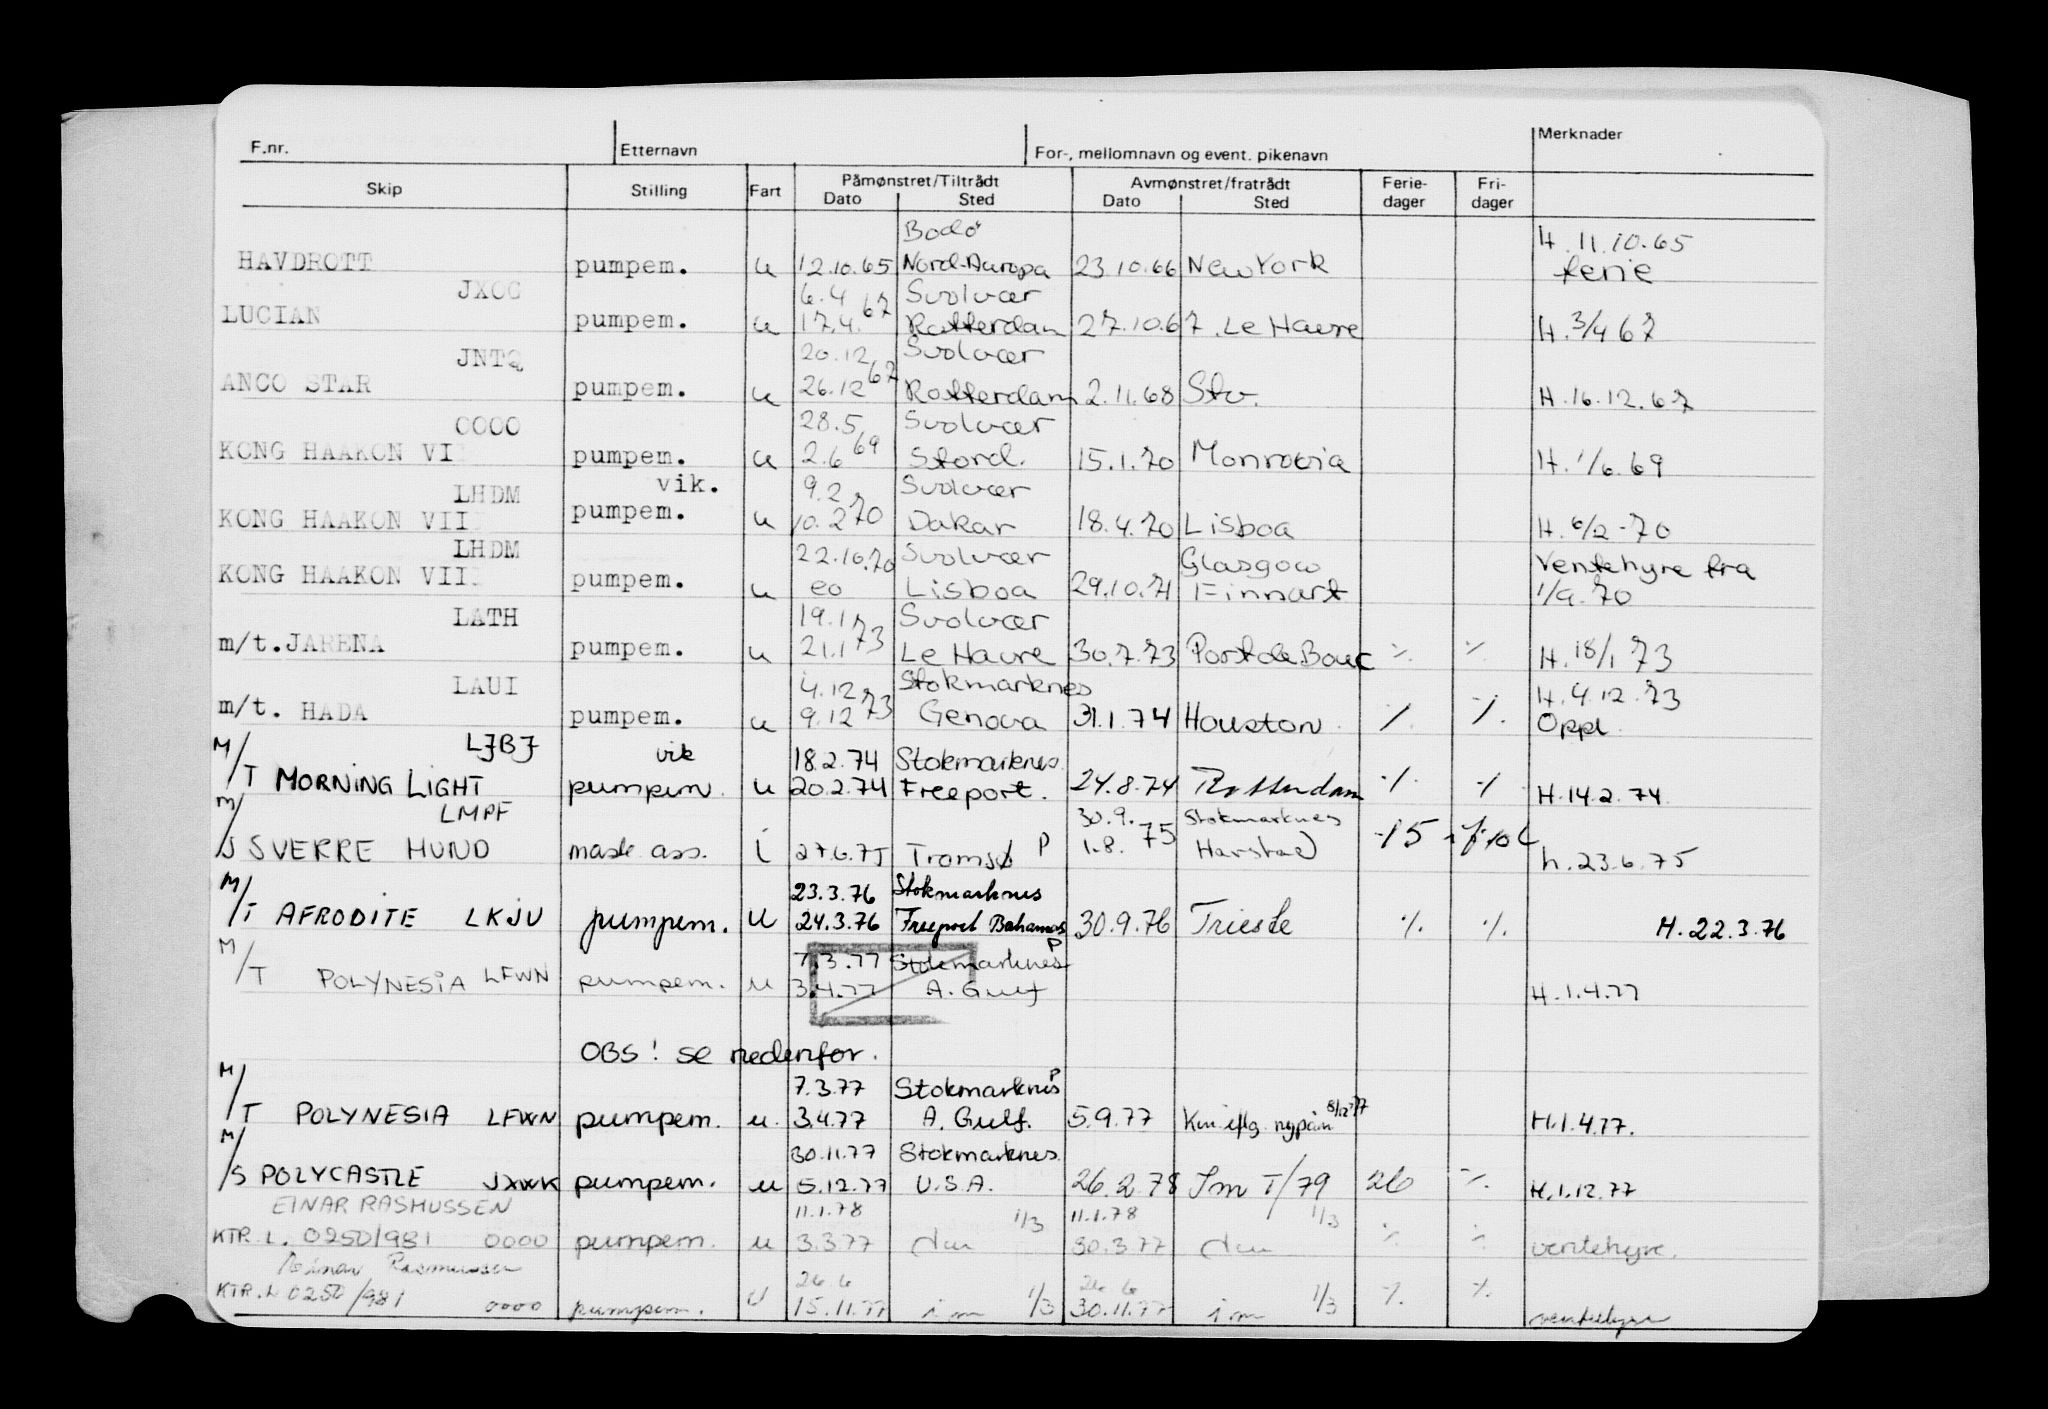 F.nr. Etternavn For-, mellomnavn og event. pikenavn Merknader
Skip Stilling Fart Påmønstret/Tiltrådt Avmønstret/fratrådt Ferie- Fri-
Dato Sted Dato Sted dager dager
Bodø H. 11.10.65
HAVDROTT pumpem. u 12.10.65 Nord-Europa 23.10.66 New York ferie
JXOC 6.4 67 Svolvær
LUCIAN pumpem. u 17.4. Rotterdam 27.10.67 Le Havre H. 3/4 67
JNTQ 20.12 67 Svolvær
ANCO STAR pumpem. u 26.12 Rotterdam 2.11.68 Stv. H. 16.12.67
OOOO 28.5 69 Svolvær
KONG HAAKON VI pumpem. u 2.6 Stord. 15.1.70 Monrovia H. 1/6.69
LHDM vik. 9.2 70 Svolvær
KONG HAAKON VII pumpem. u 10.2 Dakar 18.4.70 Lisboa H. 6/2-70
LHDM 22.10.70 Svolvær Glasgow Ventehyre fra
KONG HAAKON VII pumpem. u eo Lisboa 29.10.71 Finnart 1/9.70
LATH 19.1 73 Svolvær
m/t. JARENA pumpem. u 21.1 Le Havre 30.7.73 Port de Bouc ./. ./. H. 18/1 73
LAUI 4.12 73 Stokmarknes H. 4.12.73
m/t. HADA pumpem. u 9.12 Genova 31.1.74 Houston ./. ./. Oppl.
M/ LJBJ vik 18.2.74 Stokmarknes.
T MORNING LIGHT pumpem. u 20.2.74 Freeport. 24.8.74 Rotterdam ./. ./. H. 14.2.74
M/ LMPF 30.9. 75 Stokmarknes
S SVERRE HUND mask. ass. i 27.6.75 Tromsø P 1.8. Harstad h. 23.6.75
M/ 23.3.76 Stokmarknes
T AFRODITE LKJU pumpem. U 24.3.76 Freeport Bahamas 30.9.76 Trieste ./. ./. H. 22.3.76
M/ 7.3.77 Stokmarknes P
T POLYNESIA LFWN pumpem. u 3.4.77 A. Gulf H. 1.4.77
OBS! se nedenfor.
M/ 7.3.77 Stokmarknes P
T POLYNESIA LFWN pumpem. u. 3.4.77 A. Gulf. 5.9.77 H. 1.4.77.
M/ 30.11.77 Stokmarknes.
S POLYCASTLE JXWK pumpem. u 5.12.77 U.S.A. 26.2.78 Im I/79 26 ./. H. 1.12.77
EINAR RASMUSSEN 11.1.78 1/3 11.1.78 1/3
KTR. L. 0250/981 0000 pumpem. u 3.3.77 30.3.77 ./. ./. ventehyre.
Rasmussen 26.6 26.6
KTR. L 0250/981 0000 pumpem. U 15.11.77 im 1/3 30.11.77 im 1/3 ./. ./. ventehyre